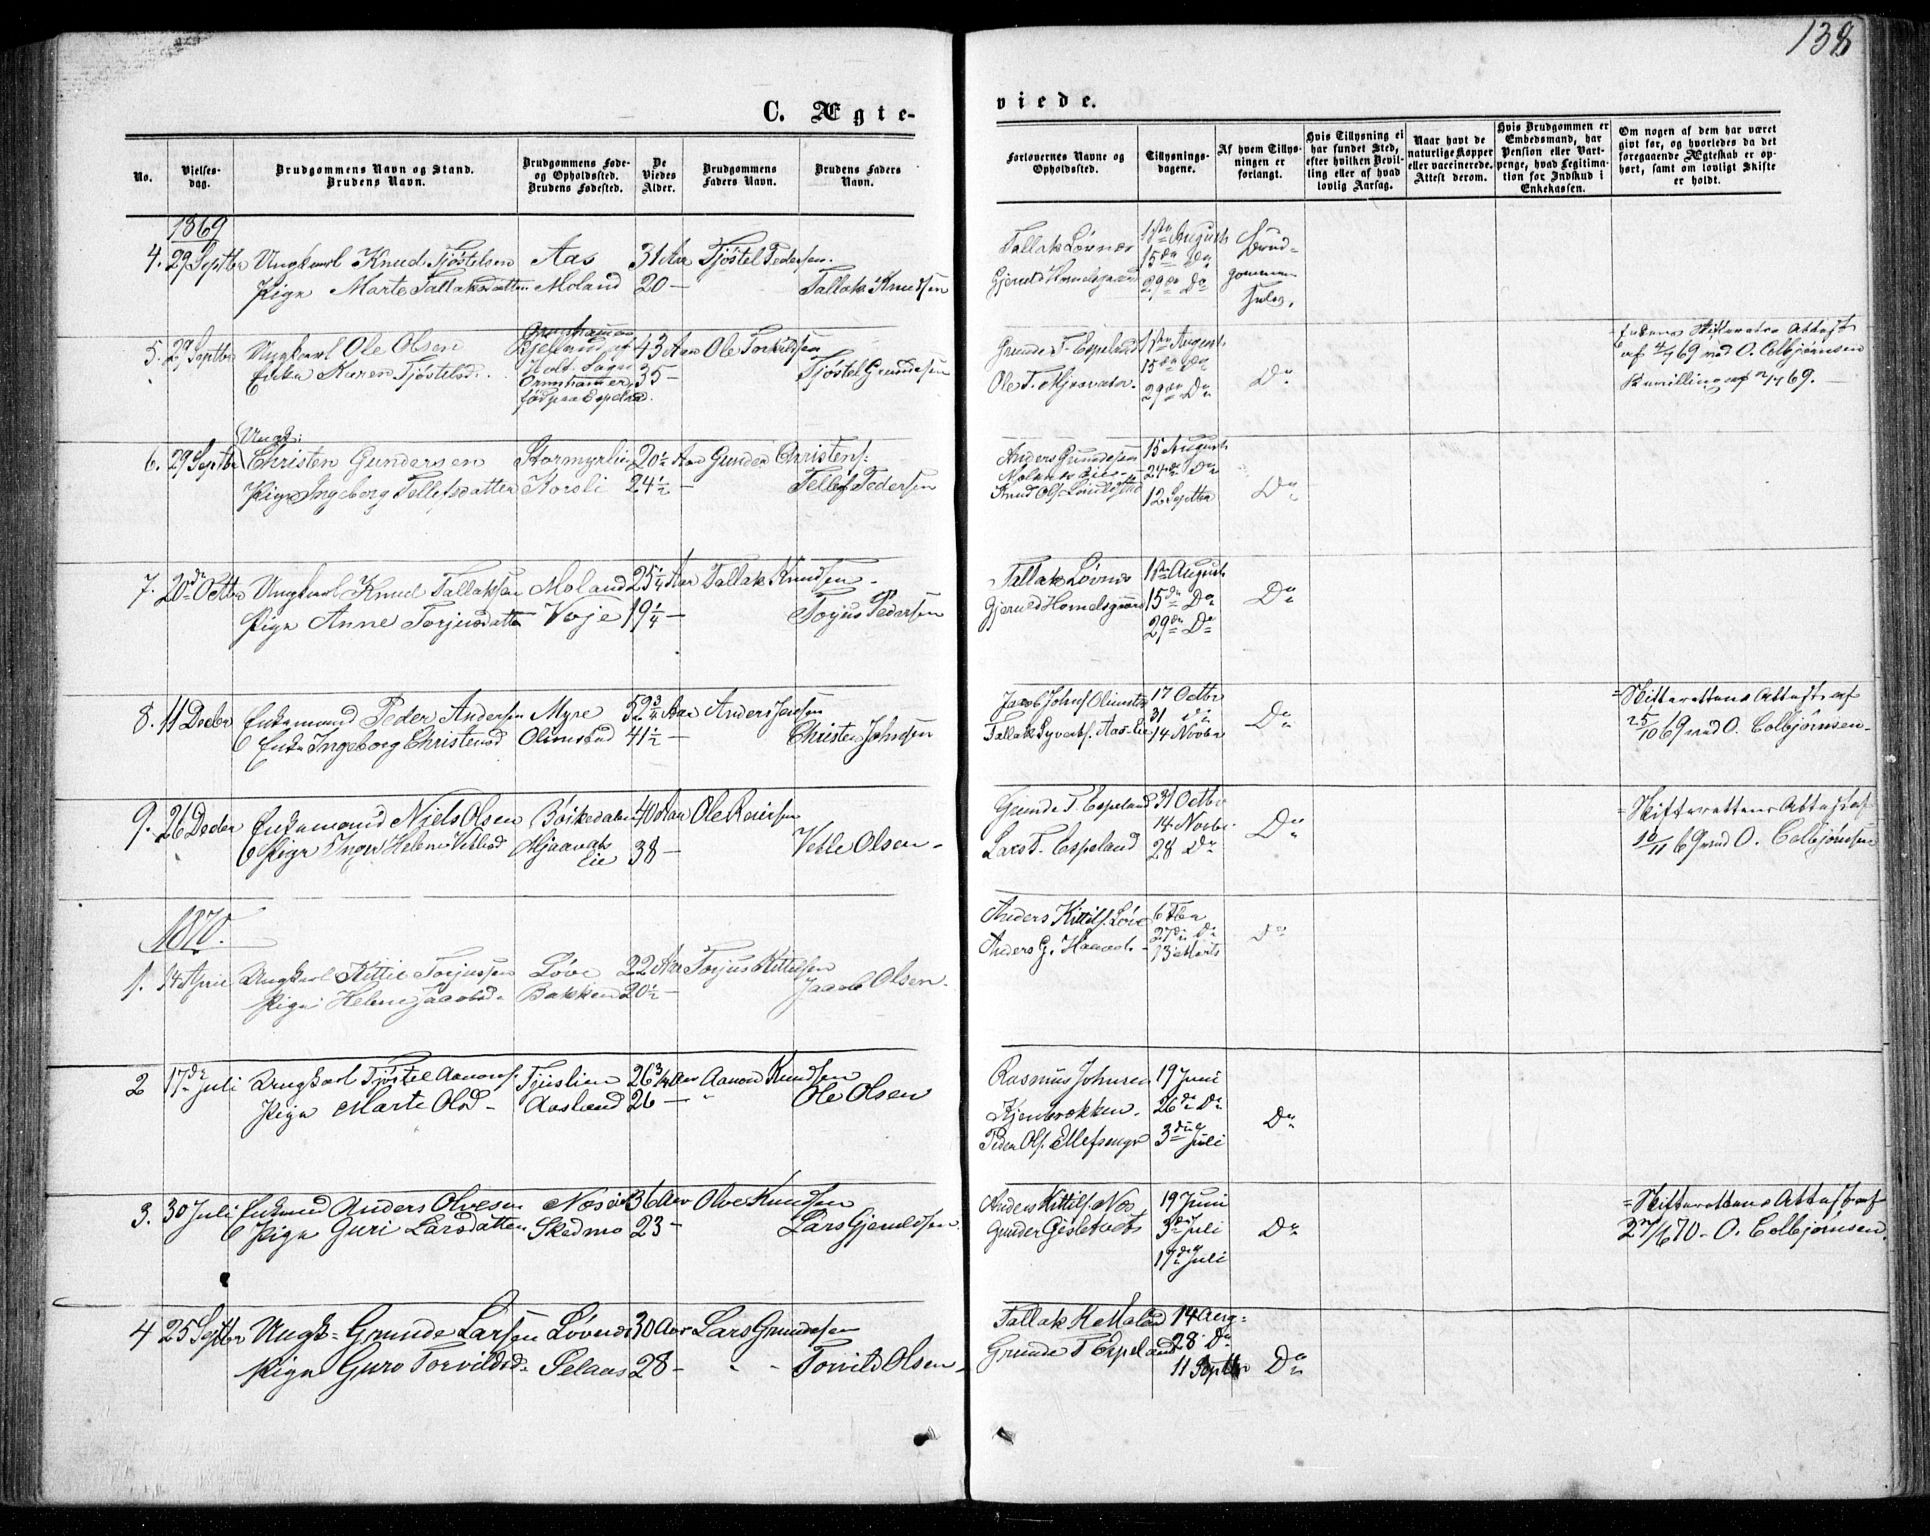 138
C. Ægte-
viede.
No.
Vielses-
dag.
Brudgommens Navn og Stand.
Brudens Navn.
Brudgommens Føde-
og Opholdssted.
Brudens Fødested.
De
Viedes
Alder.
Brudgommens
Faders Navn.
Brudens Faders
Navn.
Forlovernes Navne og
Opholdssted.
Tillysnings-
dagene.
Af hvem Tillys-
ningen er
forlangt.
Hvis Tillysning ei
har fundet Sted,
efter hvilken Bevil-
ling eller af hvad
lovlig Aarsag.
Naar havt de
naturlige Kopper
eller vaccinerede.
Attest derom.
Hvis Brudgommen er
Embedsmand, har
Pension eller Vart-
penge, hvad Legitima-
tion for Indskud i
Enkekassen.
Om nogen af dem har været
givt for, og hvorledes da det
foregaaende Ægteskab er op-
hørt, samt om lovligt Skifte
er holdt.
1869
4. 29 Septbr Ungkarl Knud Tjøstelsen Aas 31 Aar Tjøstel Pedersen.
Pige Marte Tallaksdatter Moland 20 — Tallak Knudsen
Tallak Løvnes 1ste August Brud-
Gjeruld Homelsgaard 15de Do gommen
29de Do
5. 29 Septbr Ungkarl Ole Olsen 43 Aar Ole Torkildsen
Enke Karen Tjøstelsd. Holt Sogn 35 — Tjøstel Grundesen
Ormshammer
fød paa Espeland.
Grunde T. Espeland 1ste August
15de Do
Ole T. 29de Do Do
Enkens Skifterets Attest
af 4/9 69 ved O. Colbjørnsen
69. —
6. 29 Septbr Ungk: Christen Gundersen Stormyrlie 20½ Aar Gunder Christens.
Pige Ingeborg Tellefsdatter Korsli 24½ — Tellef Pedersen
Anders Gundesen 15 August
24de Do
Knud Ols. 12 Septbr Do
7. 20de Octbr Ungkarl Knud Tallaksen Moland 25¼ Aar Tallak Knudsen.
Pige Anne Torjusdatter Voje 19¼ — Torjus Pedersen
Tallak Løvnes 1ste August
Gjeruld Homelsgaard 15de Do Do
29de Do
8. 11 Decbr Enkemand Peder Andersen Myre 52¾ Aar Anders Jensen
Enke Ingeborg Christensd Olimstad 41½ — Christen Johnsen
Jacob Johns Olimstad 17 Octbr
31 Do Do
Tallak Syverts. Aas-Eie 14 Novbr
Skifterettens Attest af
25/10 69 ved O. Colbjørnsen.
9. 26 Decbr Enkemand Niels Olsen Bøikedalen 40 Aar Ole Reiersen
Pige Inger Helene Vetlesd Hjaavats Eie 38 — Vetle Olsen
Grunde T. Espeland 31 Octbr
14 Novbr. Do
Lars T. Espeland 28 Do
Skifterettens Attest af
10/11 69 ved O. Colbjørnsen
1870.
1. 14 April Ungkarl Kittil Torjussen Løve 22 Aar Torjus Kittelsen
Pige Helene Jacobsd. Bakken 20½ — Jacob Olsen.
Anders Kittils. Løve 6 Fbr
27de Do Do
Anders G. 13 Marts
2 17de Juli Ungkarl Tjøstel Aanons. Tjuslien 26¾ Aar Aanon Knudsen
Pige Marte Olsd. Aasland 26 — " Ole Olsen
Rasmus Johnsen 19 Juni
Kjenbrokken. 26de Do Do
Peder Ols. 3die Juli
3. 30 Juli Enkemd Anders Olvesen Næs 36 Aar Olve Knudsen
Pige Guri Larsdatter Skedmo 23 — Lars Gjeruldsen
Anders Kittils. Næs 19 Juni
Gunder 3die Juli Do
17de Juli
Skifterettens Attest af
27/6 70 - O. Colbjørnsen.
4 25 Septbr Ungk. Grunde Larsen Løvnes 30 Aar Lars Grundesen
Pige Guro Torvildsd. Selaas 28 — " " Torvild Olsen
Tallak K Moland 14 Aug
Grunde T Espeland 28 Do
11 Septbr Do